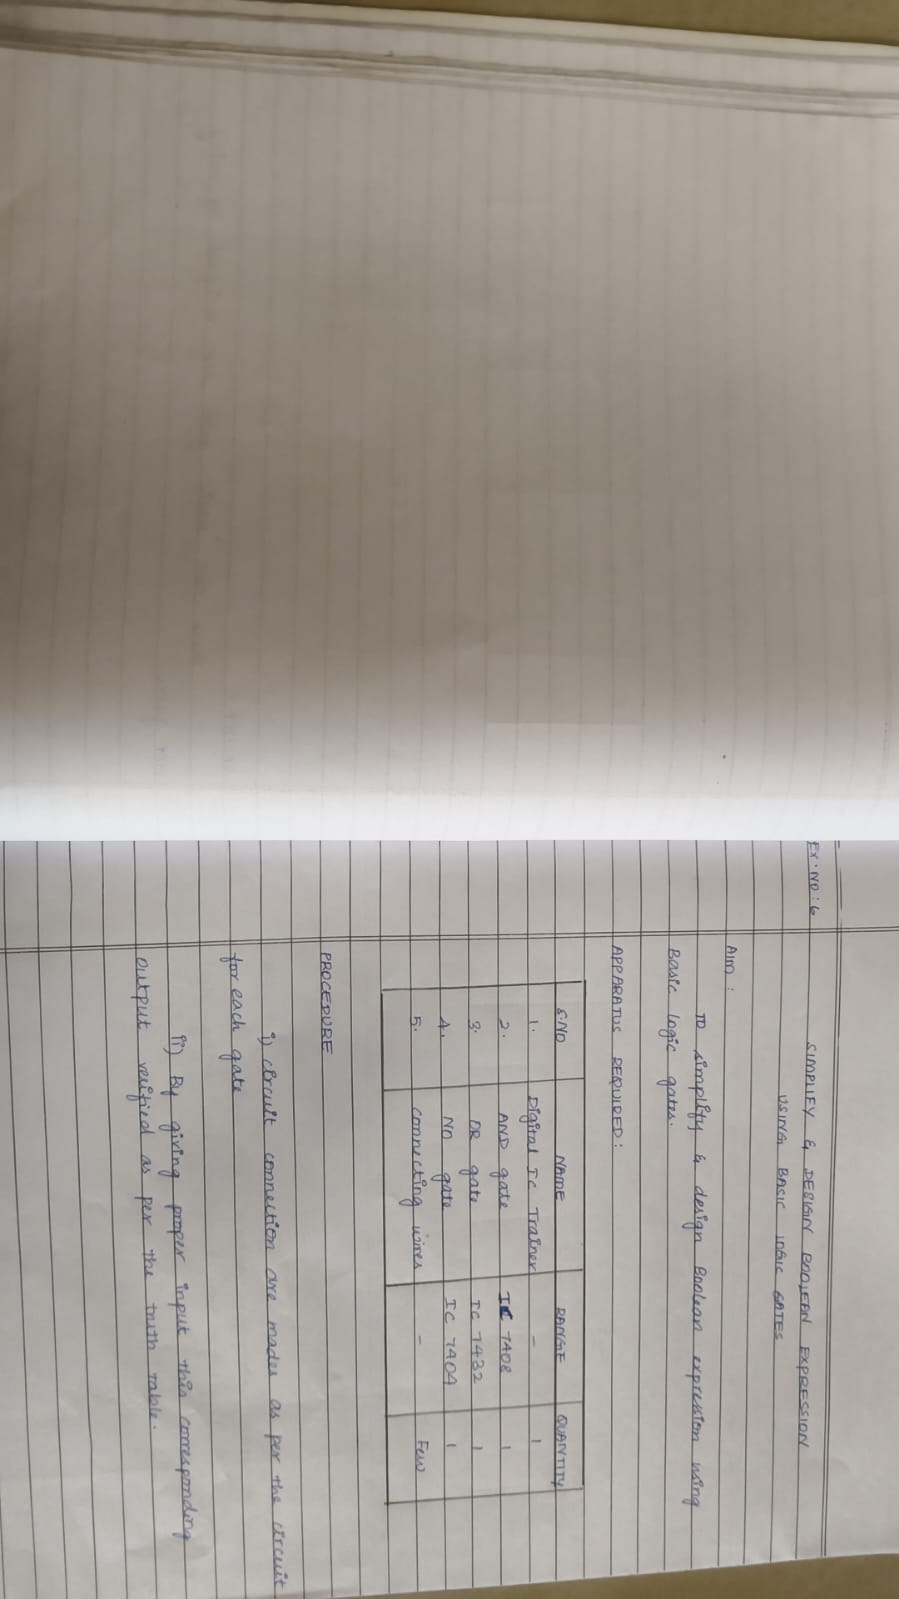 Ex. NO : 6
SIMPLIFY & DESIGN BOOLEAN EXPRESSION
USING BASIC LOGIC GATES
AIM :
TO simplify & design Boolean expression using
Basic logic gates.
APPARATUS REQUIRED :
S.NO NAME RANGE QUANTITY
1. Digital IC Trainer - 1
2. AND gate IC 7408 1
3. OR gate IC 7432 1
4. NO gate IC 7404 1
5. connecting wires - Few
PROCEDURE
i) circuit connection are mades as per the circuit
for each gate
ii) By giving proper input this corresponding
output verified as per the truth table.